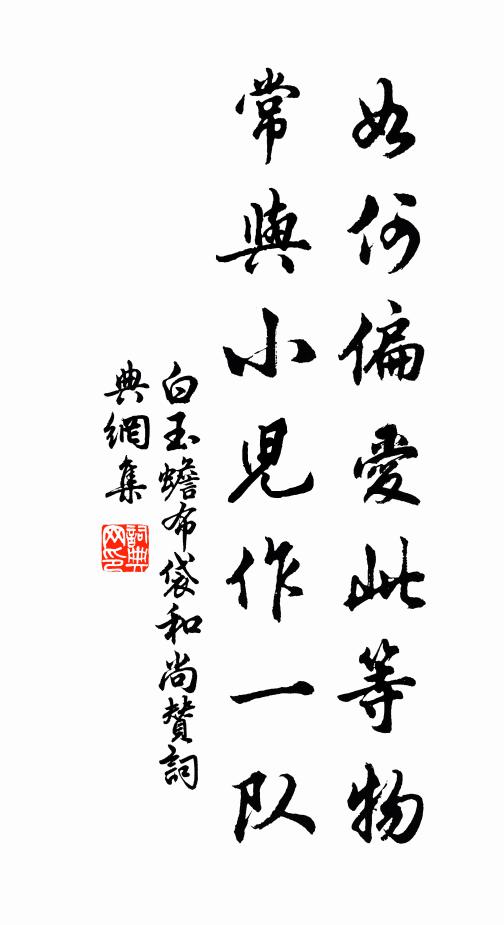 如何偏愛此等物
常與小兒作一队
白玉蟾布袋和尚贊詞
典網集
詞典
网印